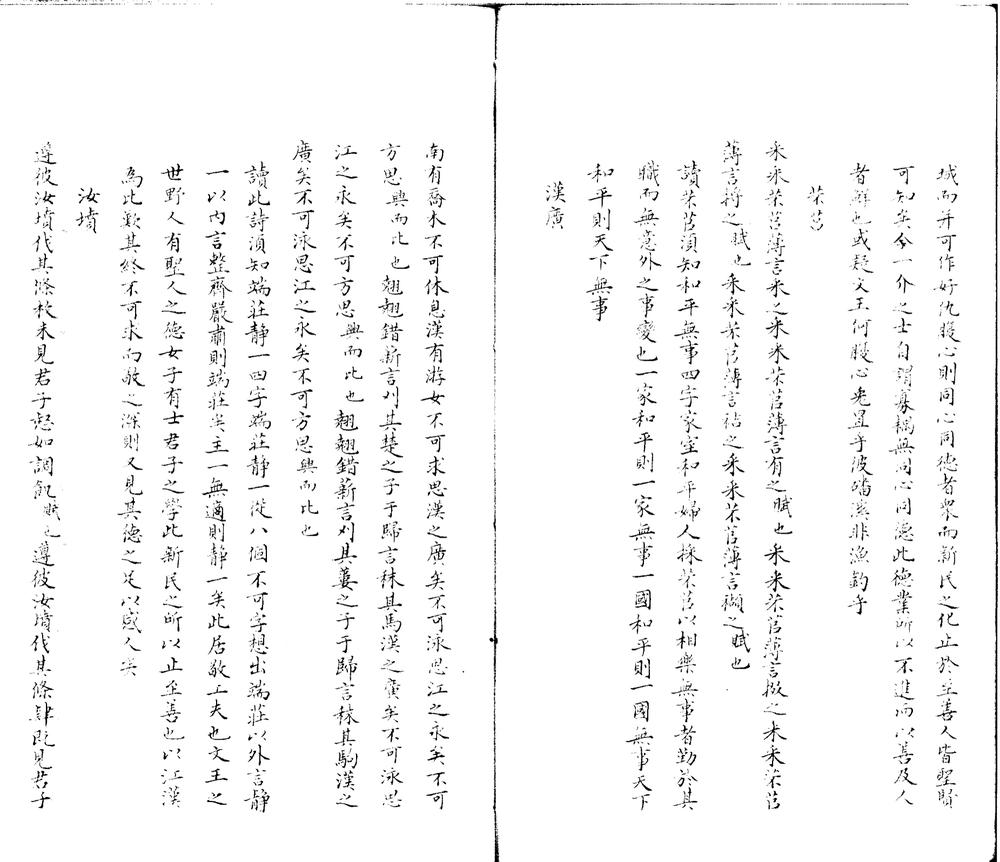 城而并可作好仇腹心則同心同德者衆而新民之化止於至善人皆聖賢
可知矣今一介之士自謂寡耦無同心同德此德業所以不進而以善及人
者鮮也或疑文王何腹心兎罝乎彼磻溪非漁釣乎
芣苢
采采芣苢薄言采之采采芣苢薄言有之賦也采采芣苢薄言掇之采采芣苢
薄言捋之賦也采采芣苢薄言袺之采采芣苢薄言襭之賦也
讀芣苢須知和平無事四字家室和平婦人採芣苢以相樂無事者勤於其
職而無意外之事變也一家和平則一家無事一國和平則一國無事天下
和平則天下無事
漢廣
南有喬木不可休息漢有游女不可求思漢之廣矣不可泳思江之永矣不可
方思興而比也翹翹錯薪言刈其楚之子于歸言秣其馬漢之廣矣不可泳思
江之永矣不可方思興而比也翹翹錯薪言刈其蔞之子于歸言秣其駒漢之
廣矣不可泳思江之永矣不可方思興而比也
讀此詩須知端莊静一四字端莊静一從八個不可字想出端莊以外言静
一以内言整齊嚴肅則端莊矣主一無適則静一矣此居敬工夫也文王之
世野人有聖人之德女子有士君子之學此新民之所以止至善也以江漢
為比歎其終不可求而敬之深則又見其德之足以感人矣
汝墳
遵彼汝墳伐其條枚未見君子惄如調飢賦也遵彼汝墳伐其條肄既見君子